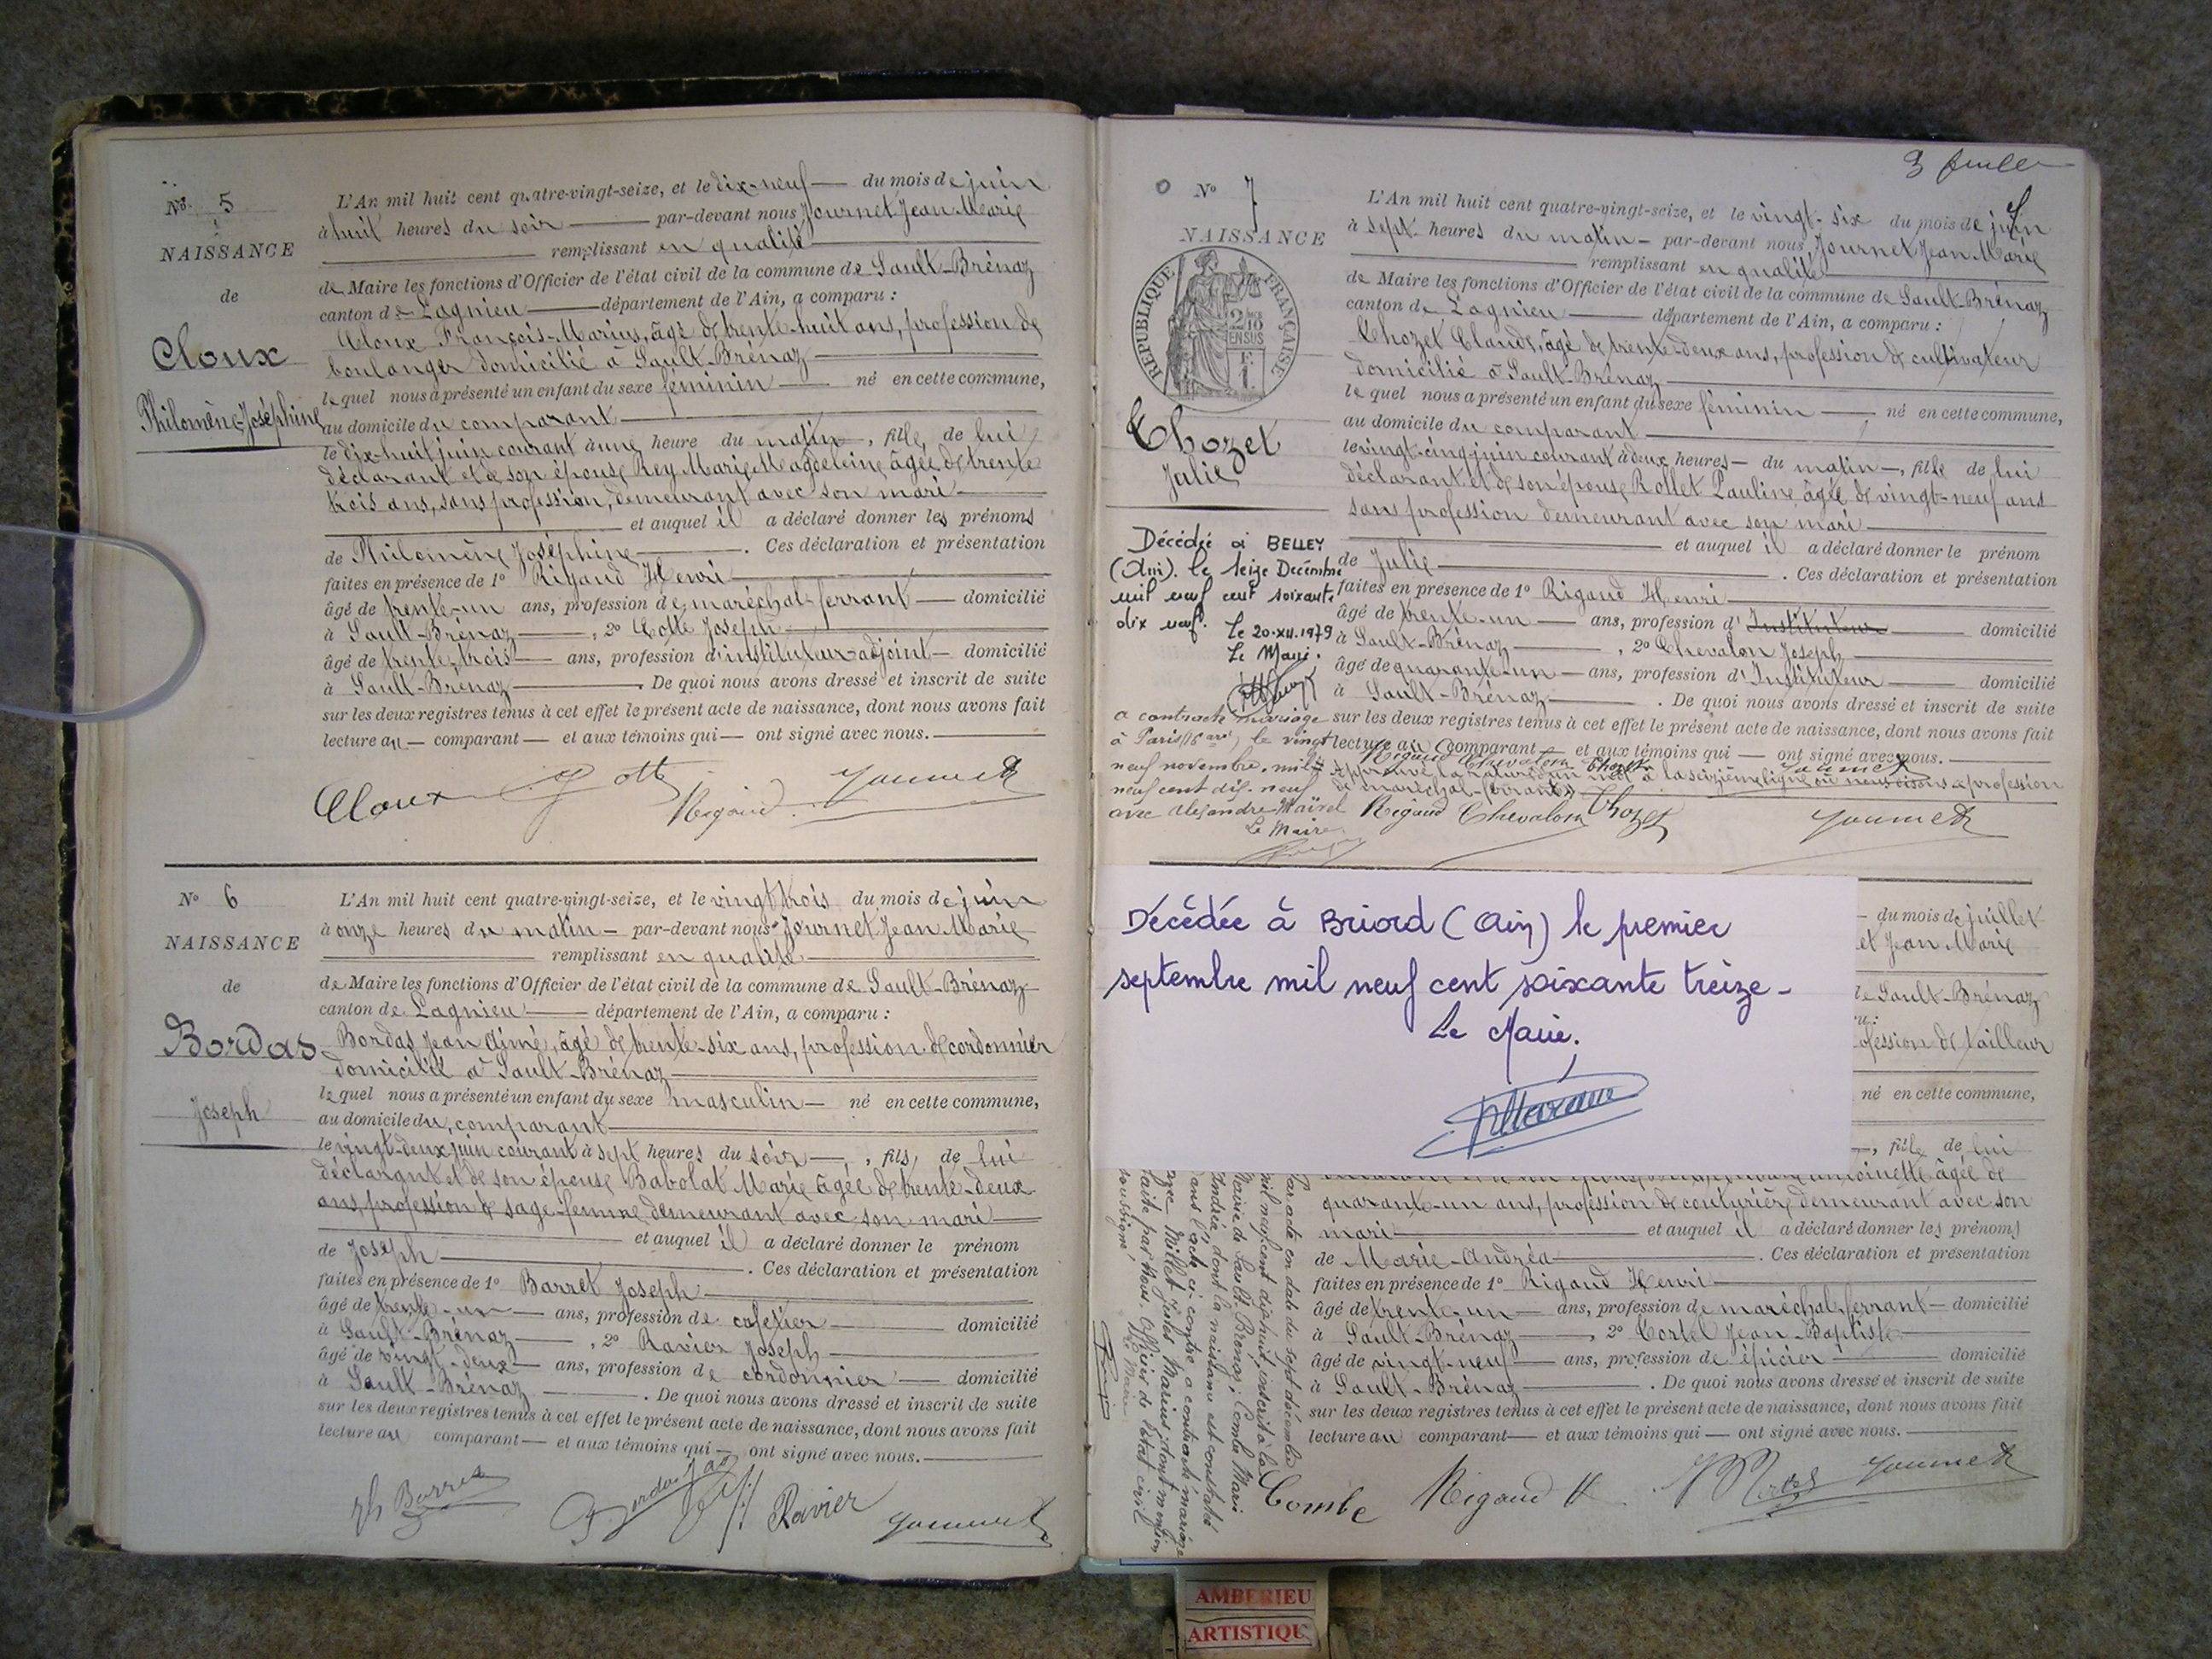 N° 5
NAISSANCE
de
Cloux
Philomène-Joséphine
L'An mil huit cent quatre-vingt-seize, et le dix-neuf — du mois de juin
à huit heures du soir — par-devant nous Journet Jean Marie
remplissant en qualité
de Maire les fonctions d'Officier de l'état civil de la commune de Sault-Brénaz
canton de Lagnieu — département de l'Ain, a comparu :
Cloux François-Marius, âgé de trente-huit ans, profession de
boulanger domicilié à Sault-Brénaz
lequel nous a présenté un enfant du sexe féminin — né en cette commune,
au domicile du comparant
le dix-huit juin courant à une heure du matin, fille de lui
déclarant et de son épouse Rey Marie Magdeleine âgée de trente
trois ans, sans profession, demeurant avec son mari
et auquel il a déclaré donner les prénoms
de Philomène Joséphine — . Ces déclaration et présentation
faites en présence de 1° Rigaud Henri
âgé de trente-un ans, profession de maréchal-ferrant — domicilié
à Sault-Brénaz — , 2° Cotte Joseph
âgé de trente-trois — ans, profession d'instituteur-adjoint — domicilié
à Sault-Brénaz — . De quoi nous avons dressé et inscrit de suite
sur les deux registres tenus à cet effet le présent acte de naissance, dont nous avons fait
lecture au — comparant — et aux témoins qui — ont signé avec nous.
Cloux Cotte Rigaud Journet
N° 6
NAISSANCE
de
Bordas
Joseph
L'An mil huit cent quatre-vingt-seize, et le vingt trois du mois de juin
à onze heures du matin — par-devant nous Journet Jean Marie
remplissant en qualité
de Maire les fonctions d'Officier de l'état civil de la commune de Sault-Brénaz
canton de Lagnieu — département de l'Ain, a comparu :
Bordas Jean Aimé, âgé de trente-six ans, profession de cordonnier
domicilié à Sault-Brénaz
lequel nous a présenté un enfant du sexe masculin — né en cette commune,
au domicile du comparant
le vingt-deux juin courant à sept heures du soir — , fils de lui
déclarant et de son épouse Babolat Marie âgée de trente-deux
ans, profession de sage-femme demeurant avec son mari
et auquel il a déclaré donner le prénom
de Joseph — . Ces déclaration et présentation
faites en présence de 1° Barret Joseph
âgé de trente-un — ans, profession de cafetier — domicilié
à Sault-Brénaz — , 2° Ravier Joseph
âgé de vingt-deux — ans, profession de cordonnier — domicilié
à Sault-Brénaz — . De quoi nous avons dressé et inscrit de suite
sur les deux registres tenus à cet effet le présent acte de naissance, dont nous avons fait
lecture au comparant — et aux témoins qui — ont signé avec nous.
Barret Bordas Ravier Journet
3
N° 7
NAISSANCE
REPUBLIQUE FRANÇAISE
2/10 EN SUS
Thozet
Julie
L'An mil huit cent quatre-vingt-seize, et le vingt-six du mois de juin
à sept heures du matin — par-devant nous Journet Jean Marie
remplissant en qualité
de Maire les fonctions d'Officier de l'état civil de la commune de Sault-Brénaz
canton de Lagnieu — département de l'Ain, a comparu :
Thozet Claude, âgé de trente-deux ans, profession de cultivateur
domicilié à Sault-Brénaz
lequel nous a présenté un enfant du sexe féminin — né en cette commune,
au domicile du comparant
le vingt-cinq juin courant à deux heures — du matin —, fille de lui
déclarant et de son épouse Rollet Pauline âgée de vingt-neuf ans
sans profession demeurant avec son mari
et auquel il a déclaré donner le prénom
de Julie — . Ces déclaration et présentation
faites en présence de 1° Rigaud Henri
âgé de trente-un — ans, profession d' Instituteur — domicilié
à Sault-Brénaz — , 2° Chevalon Joseph
âgé de quarante-un — ans, profession d'Instituteur — domicilié
à Sault-Brénaz — . De quoi nous avons dressé et inscrit de suite
sur les deux registres tenus à cet effet le présent acte de naissance, dont nous avons fait
lecture au comparant — et aux témoins qui — ont signé avec nous.
Rigaud Chevalon Thozet Journet
Approuvé la rature d'un mot à la seizième ligne où nous disons profession
de maréchal-ferrant
Rigaud Chevalon Thozet Journet
Décédée à BELLEY
(Ain). le seize Décembre
mil neuf cent soixante
dix neuf. Le 20.XII.1979
Le Maire.
a contracté mariage
à Paris (16 arr) le vingt
neuf novembre mil
neuf cent dix-neuf
avec Alexandre
Le Maire
Décédée à Briord (Ain) le premier
septembre mil neuf cent soixante treize -
Le Maire.
— du mois de juillet
et Jean Marie
de Sault-Brénaz
profession de tailleur
né en cette commune,
—, fille de lui
Antoinette âgée de
quarante-un ans, profession de couturière demeurant avec son
mari — et auquel il a déclaré donner les prénoms
de Marie-Andréa — . Ces déclaration et présentation
faites en présence de 1° Rigaud Henri
âgé de trente-un — ans, profession de maréchal-ferrant — domicilié
à Sault-Brénaz — , 2° Cortel Jean-Baptiste
âgé de vingt-neuf — ans, profession de épicier — domicilié
à Sault-Brénaz — . De quoi nous avons dressé et inscrit de suite
sur les deux registres tenus à cet effet le présent acte de naissance, dont nous avons fait
lecture au comparant — et aux témoins qui — ont signé avec nous.
Combe Rigaud H Journet
Par acte en date du sept décembre
mil neuf cent dix huit, inscrit à la
Mairie de Sault-Brénaz, Combe Marie
Andréa, dont la naissance est constatée
dans l'acte ci-contre a contracté mariage
avec Millet Jules Marius dont mention
faite par Nous, Officier de l'état civil
soussigné
Le Maire
AMBERIEU
ARTISTIQU